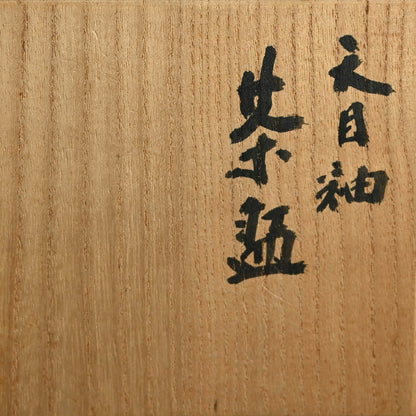 天目釉
茶盌